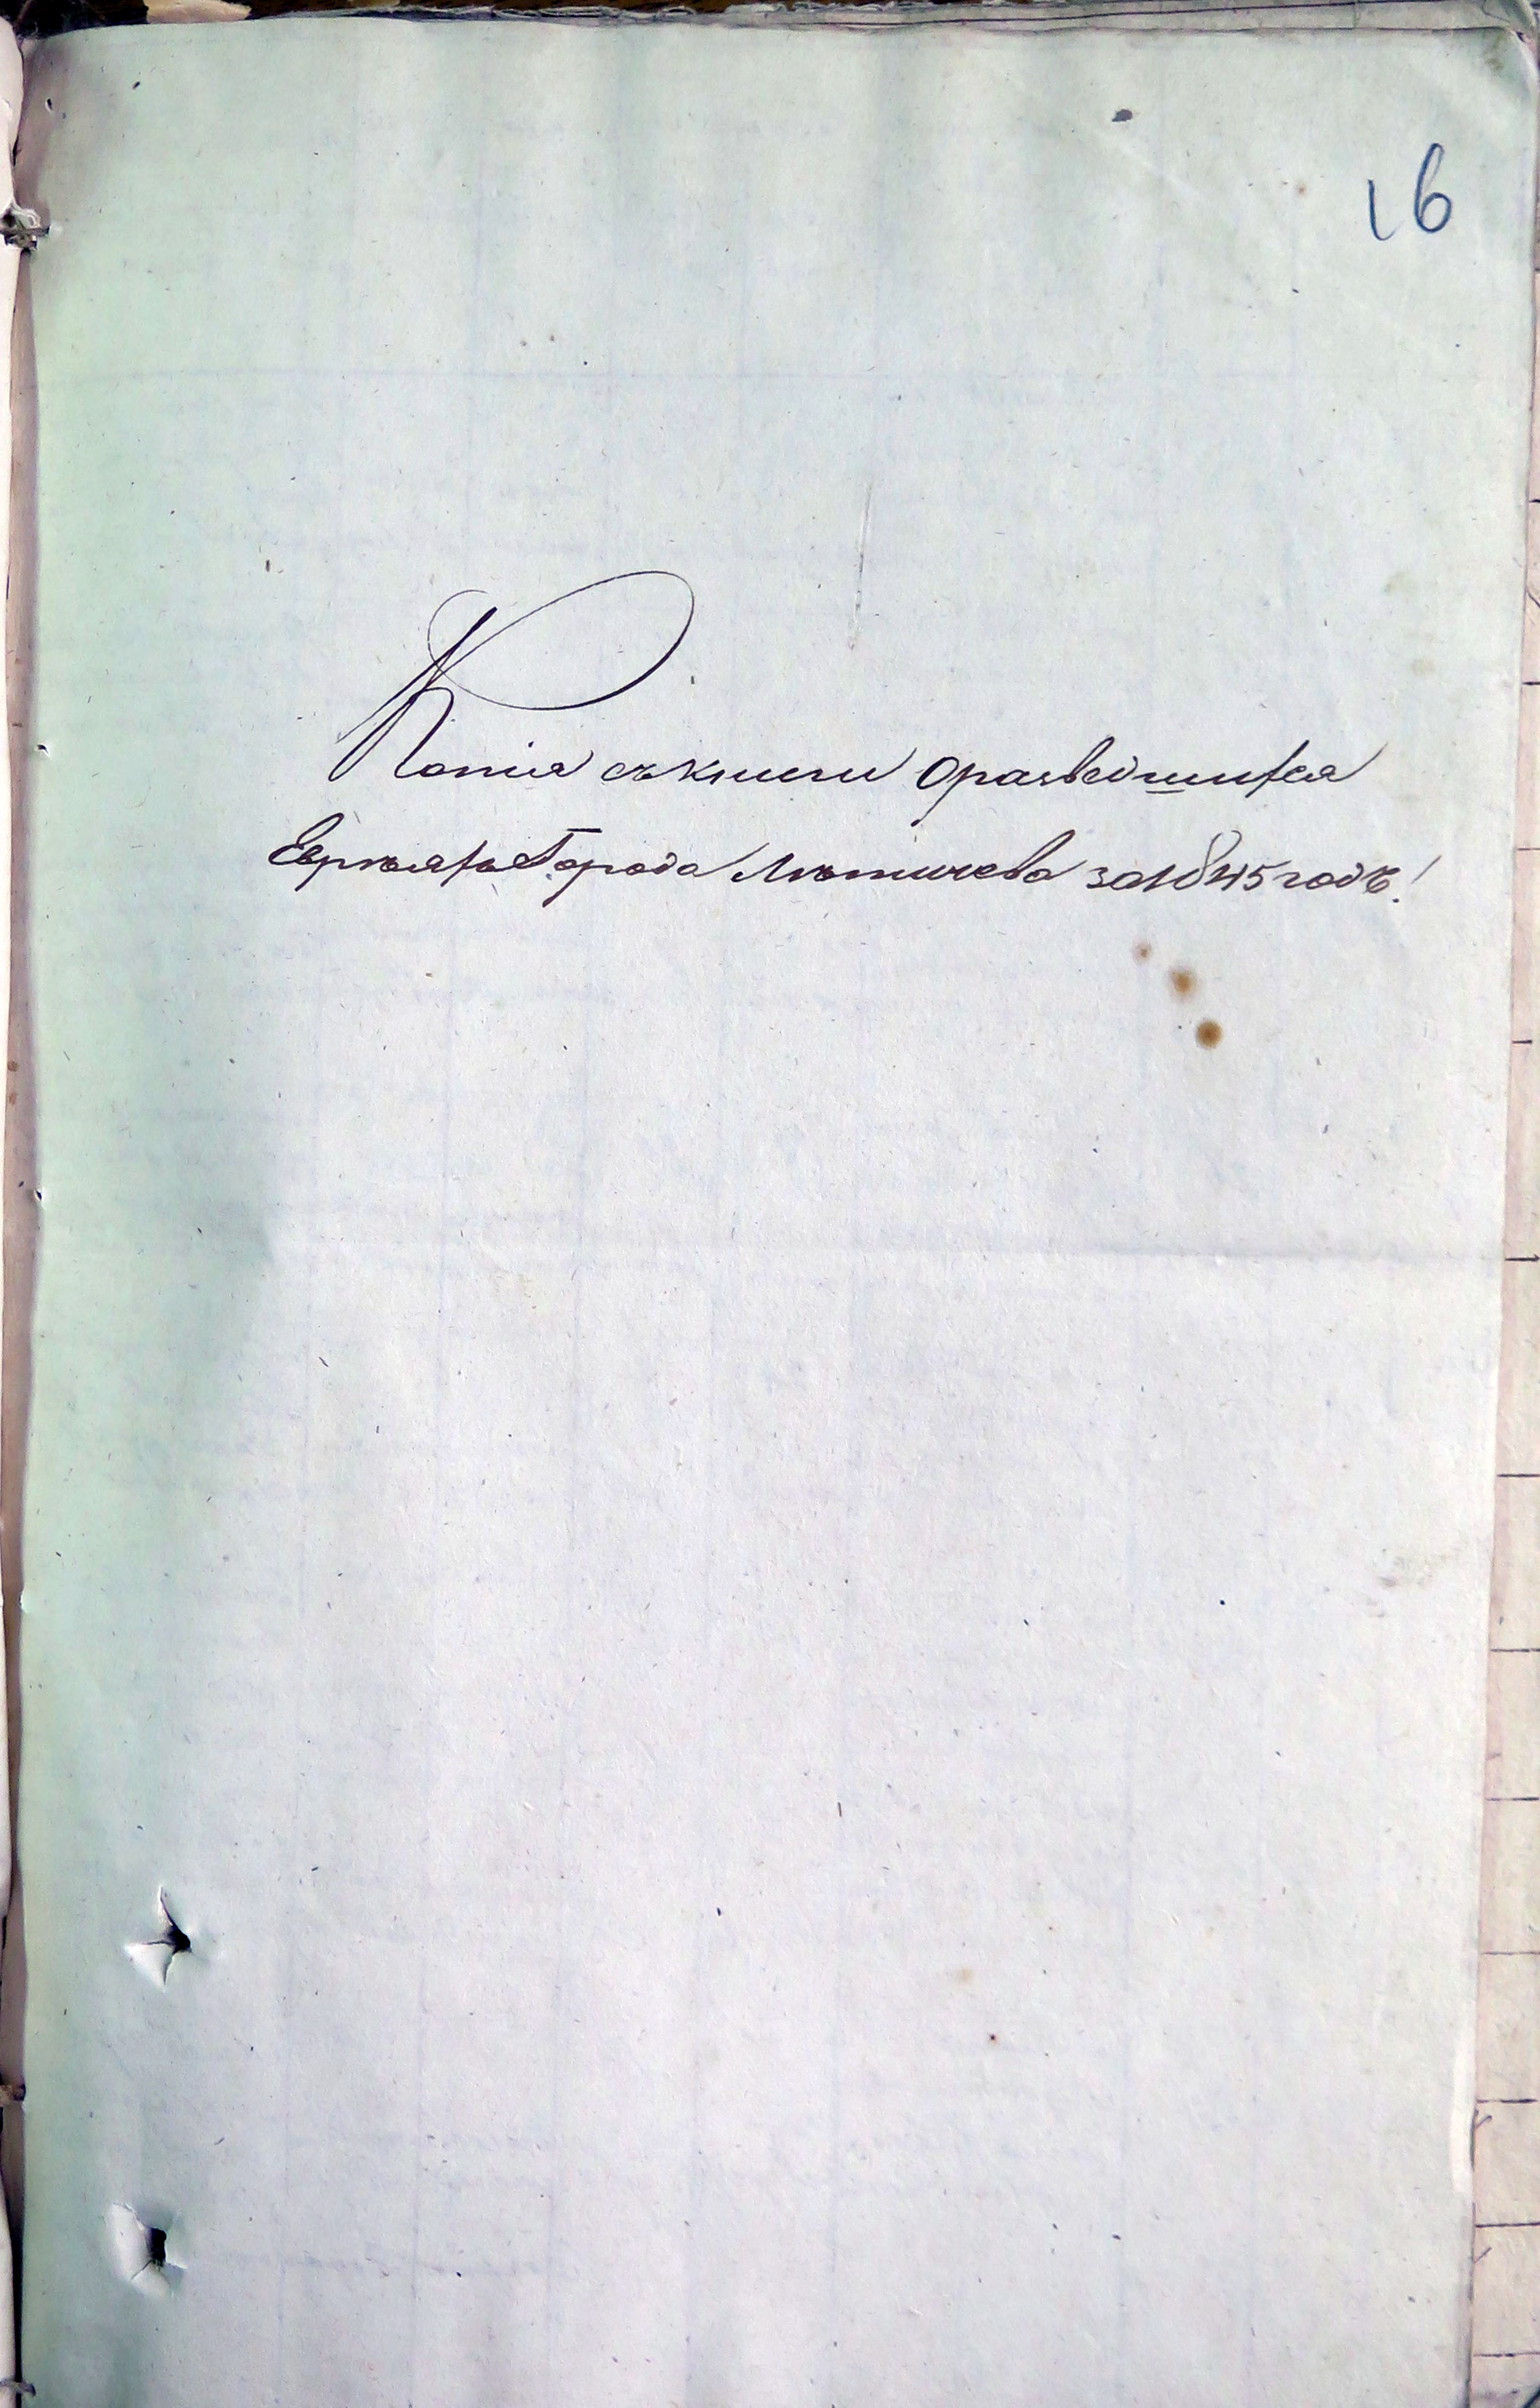 16
Копія съ книги о разведшихся
Евреяхъ Города Лѣтичева за 1845 годъ!